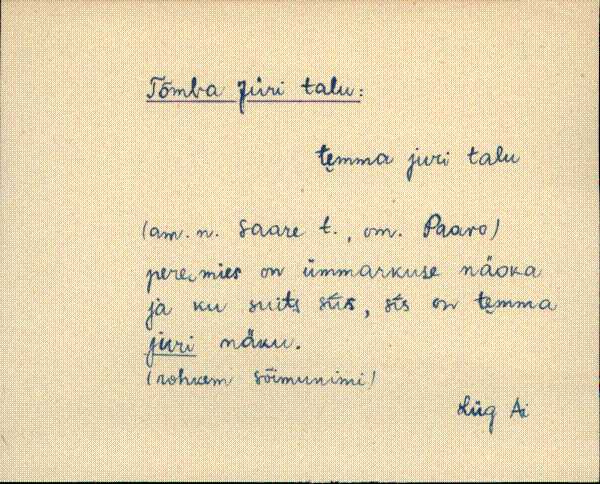 Tõmba Jüri talu:
tęmma juri talu
(am. n. Saare t., om. Paaro)
peremies on ümmarkuse näoka
ja ku suits sũs, sĩs on tęmma
juri näku.
(rohkem sõimunimi)
Lüg Ai